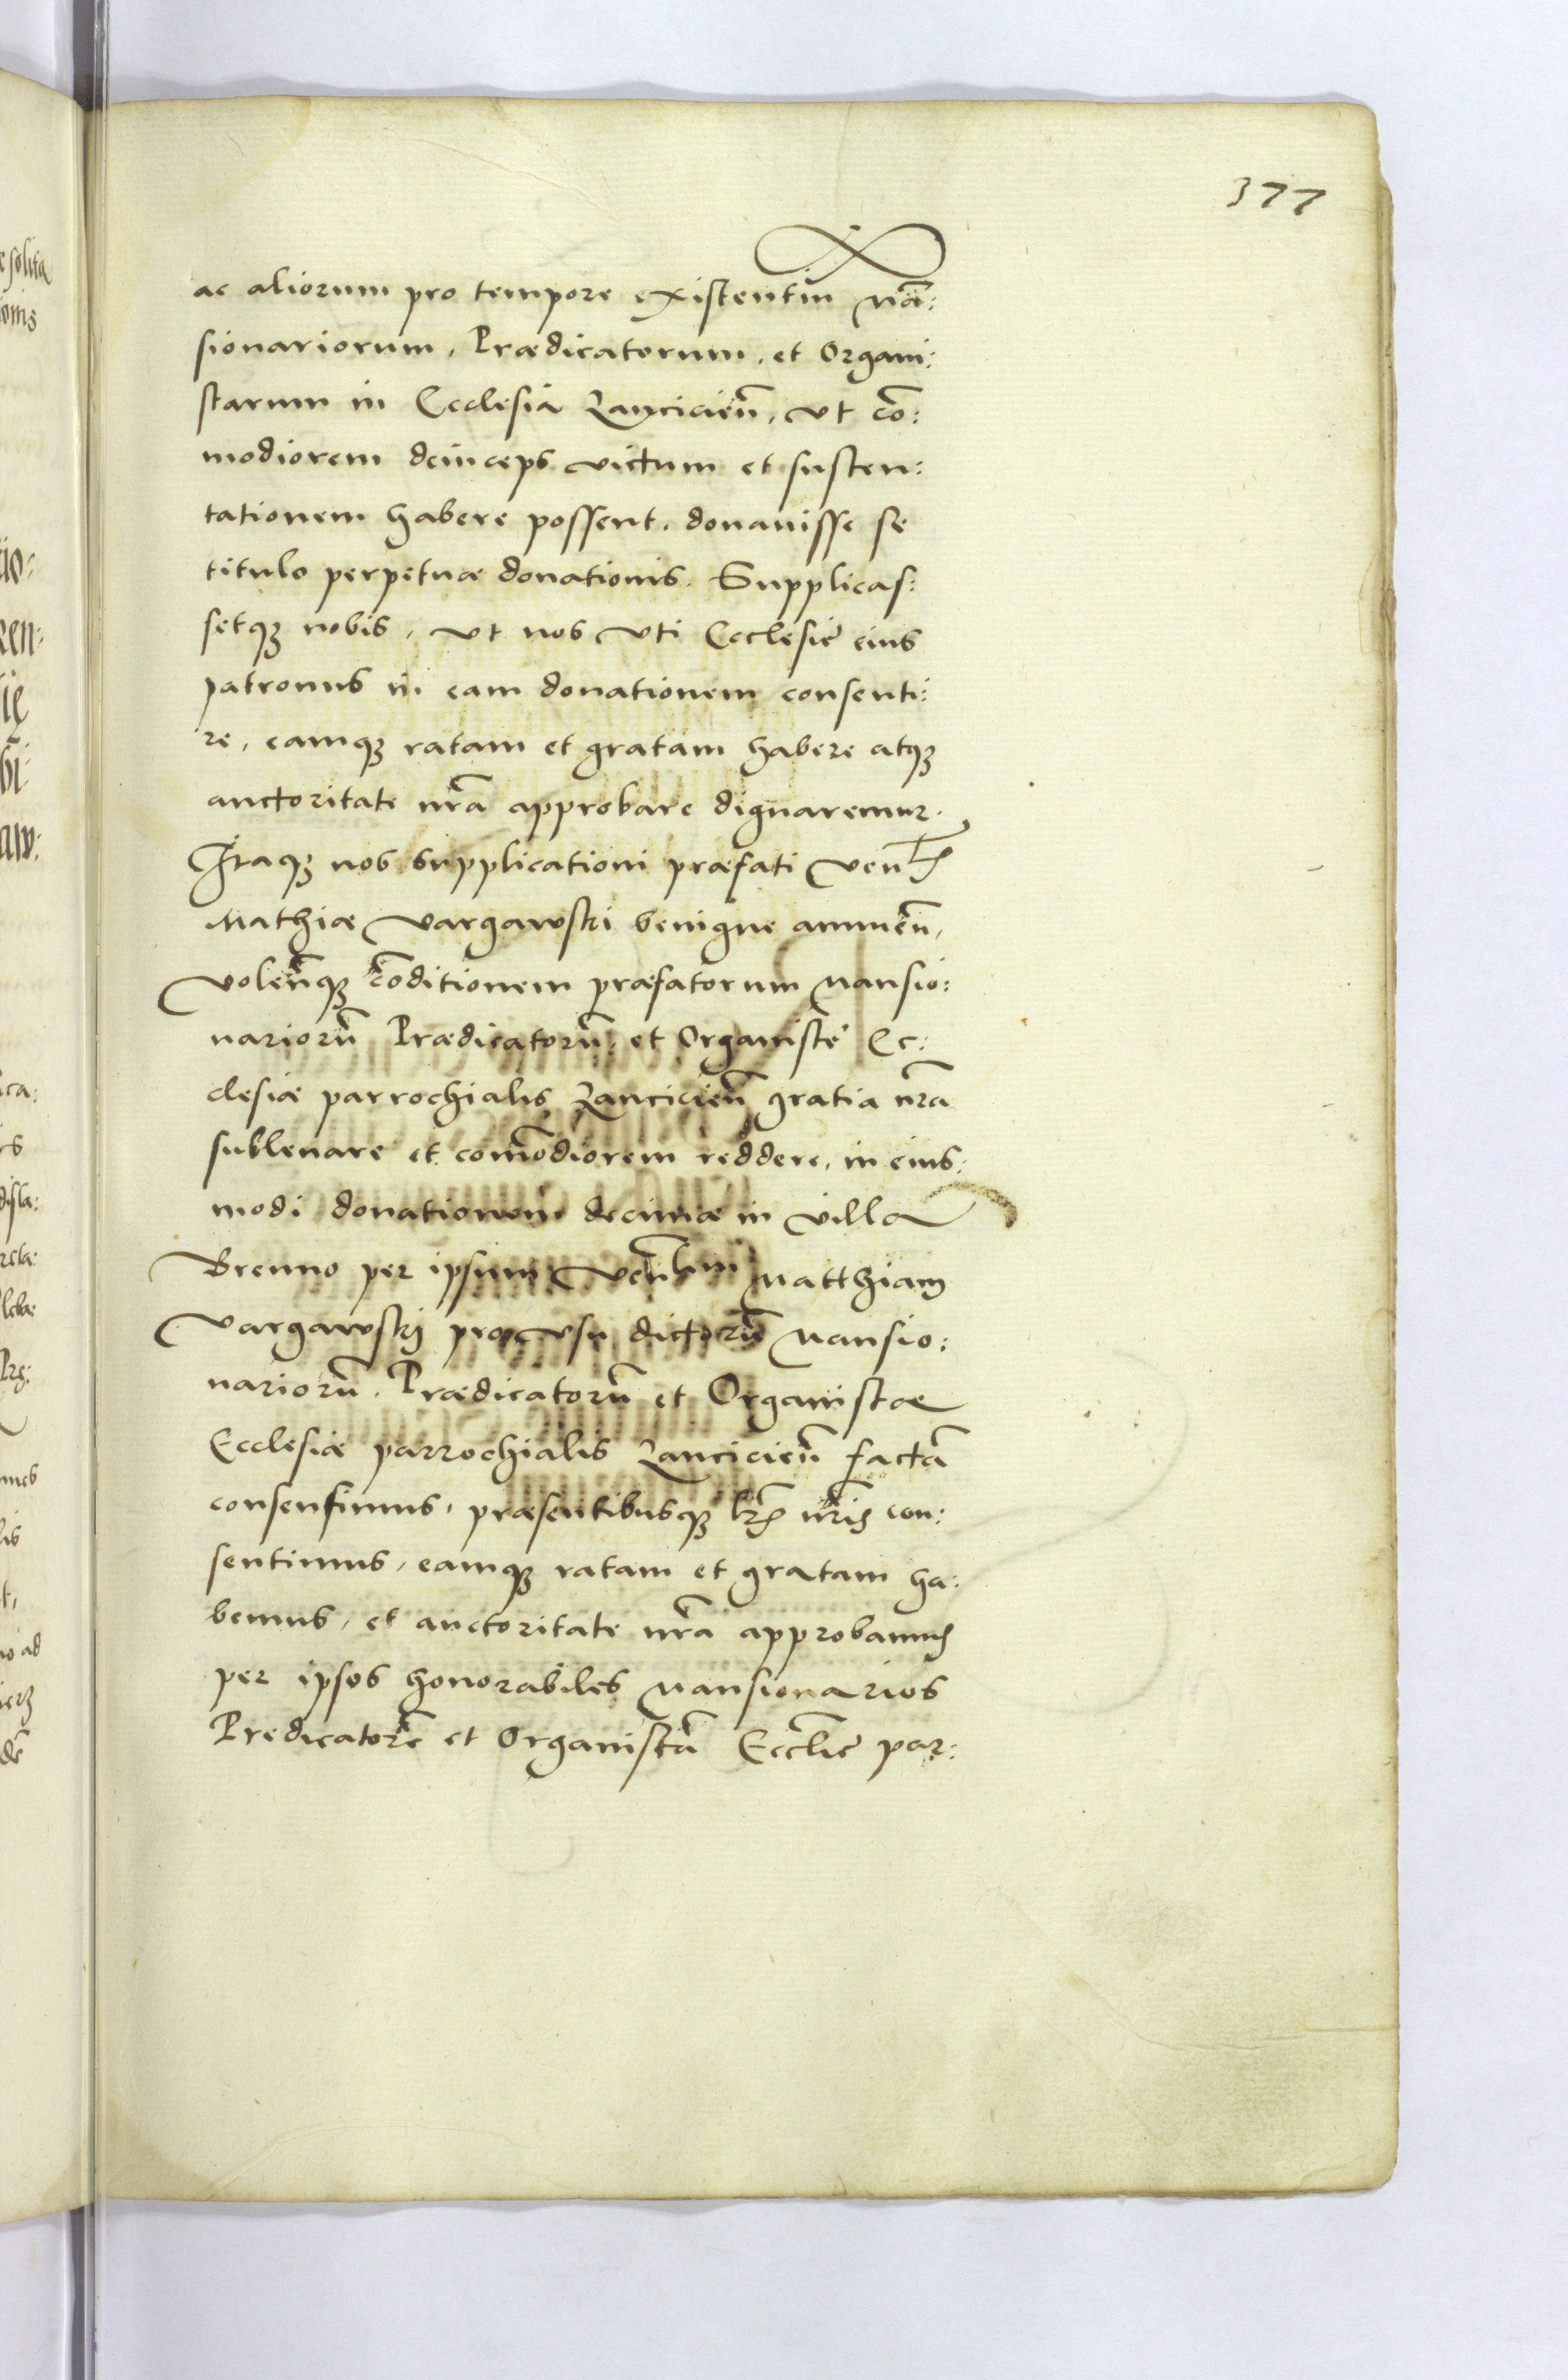 377
ac aliorum pro tempore existentiu Mā:
sionariorum, Prædicatorum, et Organi:
starum in Ecclesia Lanciciēn, vt cō:
modiorem deinceps victum et susten:
tationem habere possent, donauisse se
titulo perpetuæ donationis. Supplicas:
setqȝ nobis, vt nos vti Ecclesię eius
patronus in eam donationem consenti:
re, eamqȝ ratam et gratam habere atqȝ
auctoritate nr̄a approbare dignaremur.
Itaqȝ nos supplicationi præfati Ven̄lis
Mathiæ Vargawski benigne annueñ,
Volen̄qȝ cōditionem præfatorum Mansio:
nariorū Prædicatorū, et Organistę Ec:
clesiæ parrochialis Lanciciēn gratia nr̄a
subleuare et com̄odiorem reddere, in eius:
modi donationem decimæ in villa
Brenno per ipsum Ven̄lem Matthiam
Vargawskj pro vsu dictorū Mansio:
nariorū, Prædicatorū et Organistæ
Ecclesiæ parrochialis Lanciciēn factā
consensimus, præsentibusqȝ lr̄is nr̄is con:
sentimus, eamqȝ ratam et gratam ha:
bemus, et auctoritate nr̄a approbamus
per ipsos honorabiles Mansionarios
Predicatorē et Organistā Eccl̄ię par: